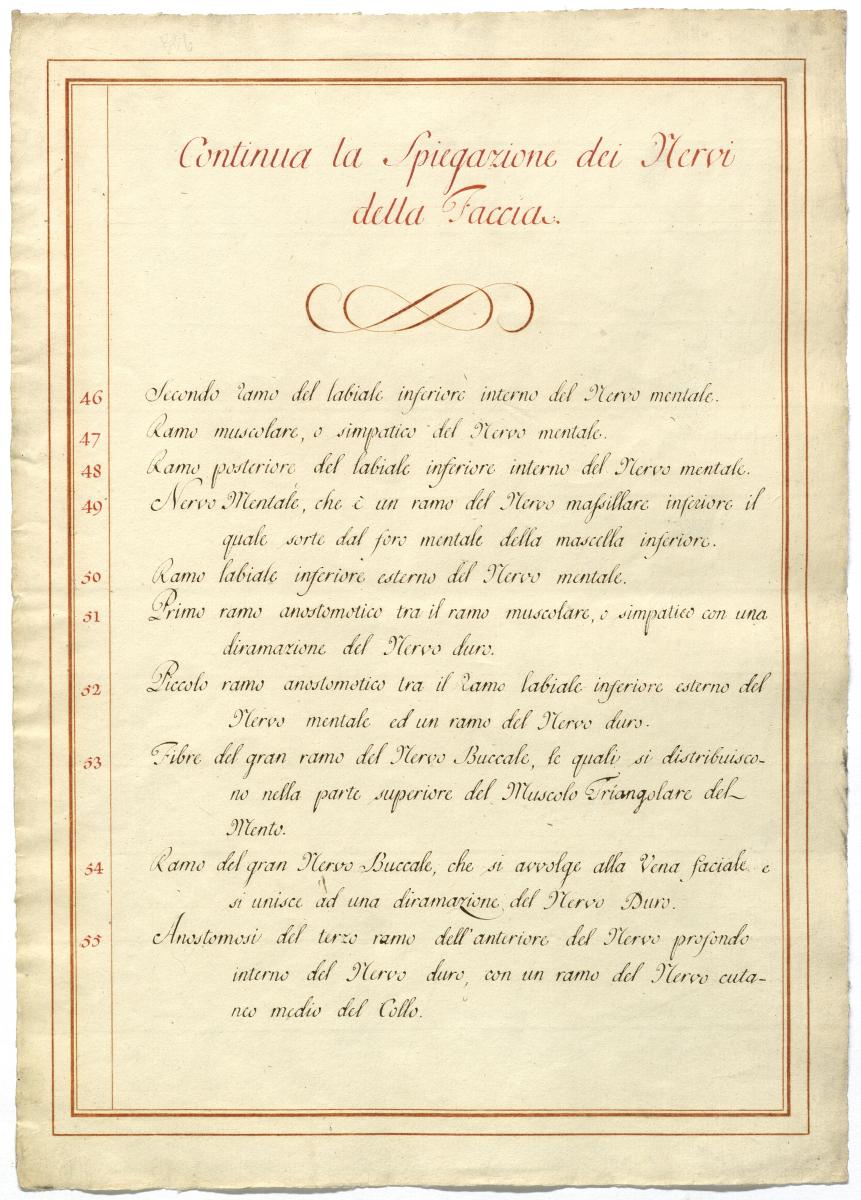 Continua la Spiegazione dei Nervi
della Faccia.
46 Secondo ramo del labiale inferiore interno del Nervo mentale.
47 Ramo muscolare, o simpatico del Nervo mentale.
48 Ramo posteriore del labiale inferiore interno del Nervo mentale.
49 Nervo Mentale, che è un ramo del Nervo maſsillare inferiore il
quale sorte dal foro mentale della mascella inferiore.
50 Ramo labiale inferiore esterno del Nervo mentale.
51 Primo ramo anostomotico tra il ramo muscolare, o simpatico con una
diramazione del Nervo duro.
52 Piccolo ramo anostomotico tra il ramo labiale inferiore esterno del
Nervo mentale ed un ramo del Nervo duro.
53 Fibre del gran ramo del Nervo Buccale, le quali si distribuisco-
no nella parte superiore del Muscolo Triangolare del
Mento.
54 Ramo del gran Nervo Buccale, che si avvolge alla Vena faciale e
si unisce ad una diramazione del Nervo Duro.
55 Anostomosi del terzo ramo dell'anteriore del Nervo profondo
interno del Nervo duro, con un ramo del Nervo cuta-
neo medio del Collo.